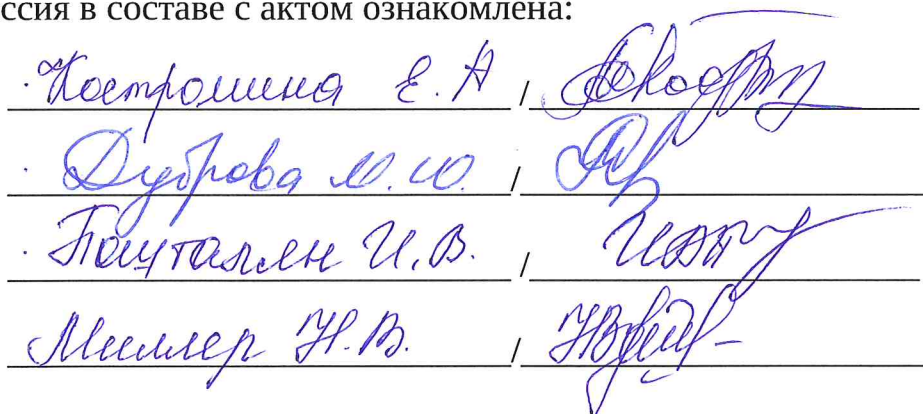 ссия в составе с актом ознакомлена:
Костромина Е.А /
Дуброва М.Ю. /
Пашталян И.В. /
Миллер Н.В. /